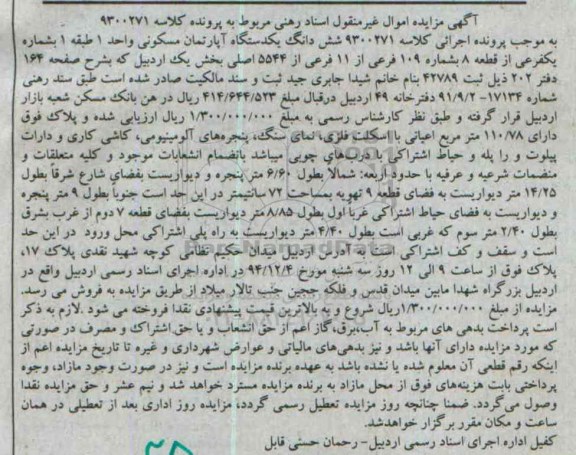 آگهی مزایده اموال غیرمنقول اسناد رهنی مربوط به پرونده کلاسه ۹۳۰۰۲۷۱
به موجب پرونده اجرائی کلاسه ۹۳۰۰۲۷۱ شش دانگ یکدستگاه آپارتمان مسکونی واحد ۱ طبقه ۱ بشماره
یکفرعی از قطعه ۸ بشماره ۱۰۹ فرعی از ۱۱ فرعی از ۵۵۴۴ اصلی بخش یک اردبیل که بشرح صفحه ۱۶۴
دفتر ۲۰۲ ذیل ثبت ۴۲۷۸۹ بنام خانم شیدا جابری جید ثبت و سند مالکیت صادر شده است طبق سند رهنی
شماره ۱۷۱۳۴- ۹۱/۹/۲ دفترخانه ۴۹ اردبیل درقبال مبلغ ۴۱۴/۶۴۴/۵۲۳ ریال در هن بانک مسکن شعبه بازار
اردبیل قرار گرفته و طبق نظر کارشناس رسمی به مبلغ ۱/۳۰۰/۰۰۰/۰۰۰ ریال ارزیابی شده و پلاک فوق
دارای ۱۱۰/۷۸ متر مربع اعیانی با اسکلت فلزی، نمای سنگ، پنجره‌های آلومینیومی، کاشی کاری و دارات
پیلوت و را پله و حیاط اشتراکی با درب‌های چوبی میباشد بانضمام انشعابات موجود و کلیه متعلقات و
منضمات شرعیه و عرفیه با حدود اربعه: شمالا بطول ۶/۶۰ متر پنجره و دیواریست بفضای شارع شرقا بطول
۱۴/۲۵ متر دیواریست به فضای قطعه ۹ تهویه بمساحت ۷۲ سانتیمتر در این حد است جنوبا بطول ۹ متر پنجره
و دیواریست به فضای حیاط اشتراکی غربا اول بطول ۸/۸۵ متر دیواریست بفضای قطعه ۷ دوم از غرب بشرق
بطول ۲/۴۰ متر سوم که غربی است بطول ۴/۴۰ متر دیواریست به راه پلی اشتراکی محل ورود در این حد
است و سقف و کف اشتراکی است به آدرس اردبیل میدان حکیم نظامی کوچه شهید نقدی پلاک ۱۷،
پلاک فوق از ساعت ۹ الی ۱۲ روز سه شنبه مورخ ۹۴/۱۲/۴ در اداره اجرای اسناد رسمی اردبیل واقع در
اردبیل بزرگراه شهدا مابین میدان قدس و فلکه ججین جنب تالار میلاد از طریق مزایده به فروش می رسد.
مزایده از مبلغ ۱/۳۰۰/۰۰۰/۰۰۰ریال شروع و به بالاترین قیمت پیشنهادی نقدا فروخته می شود .لازم به ذکر
است پرداخت بدهی های مربوط به آب،برق،گاز اعم از حق انشعاب و یا حق اشتراک و مصرف در صورتی
که مورد مزایده دارای آنها باشد و نیز بدهی‌های مالیاتی و عوارض شهرداری و غیره تا تاریخ مزایده اعم از
اینکه رقم قطعی آن معلوم شده یا نشده باشد به عهده برنده مزایده است و نیز در صورت وجود مازاد، وجوه
پرداختی بابت هزینه‌های فوق از محل مازاد به برنده مزایده مسترد خواهد شد و نیم عشر و حق مزایده نقدا
وصول می‌گردد. ضمنا چنانچه روز مزایده تعطیل رسمی گردد، مزایده روز اداری بعد از تعطیلی در همان
ساعت و مکان مقرر برگزار خواهدشد.
کفیل اداره اجرای اسناد رسمی اردبیل- رحمان حسنی قابل